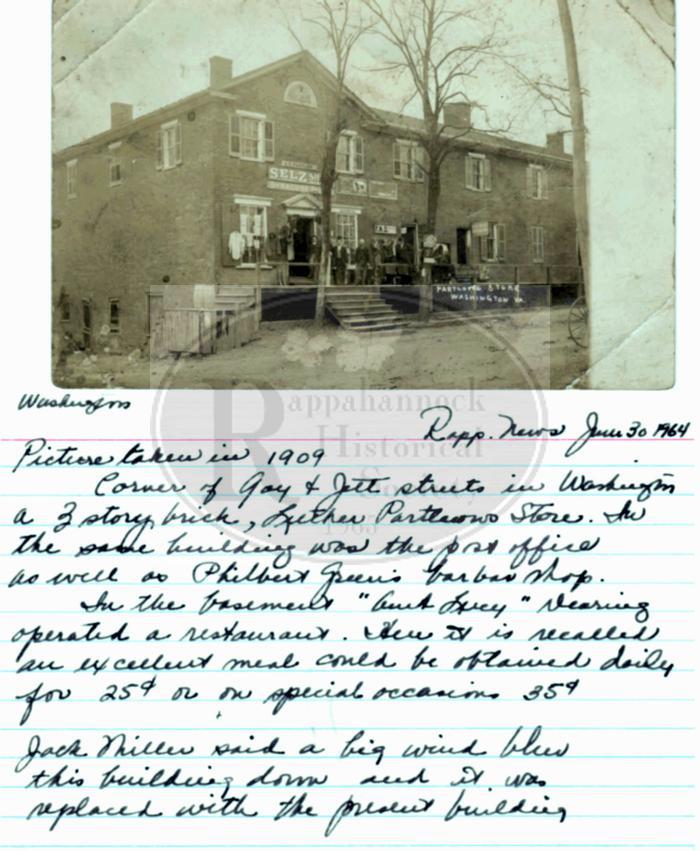 SELZ
PARTLOWS STORE
WASHINGTON VA
Washington
Rapp. News June 30 1964
Picture taken in 1909
Corner of Gay & Jett streets in Washington
a 3 story brick, Luther Partlows Store. In
the same building was the post office
as well as Philbert Green's barber shop.
In the basement "Aunt Lucy" Dearing
operated a restaurant. Here it is recalled
an excellent meal could be obtained daily
for 25¢ or on special occasions 35¢
Jack Miller said a big wind blew
this building down and it was
replaced with the present building
Rappahannock
Historical
Society
1965